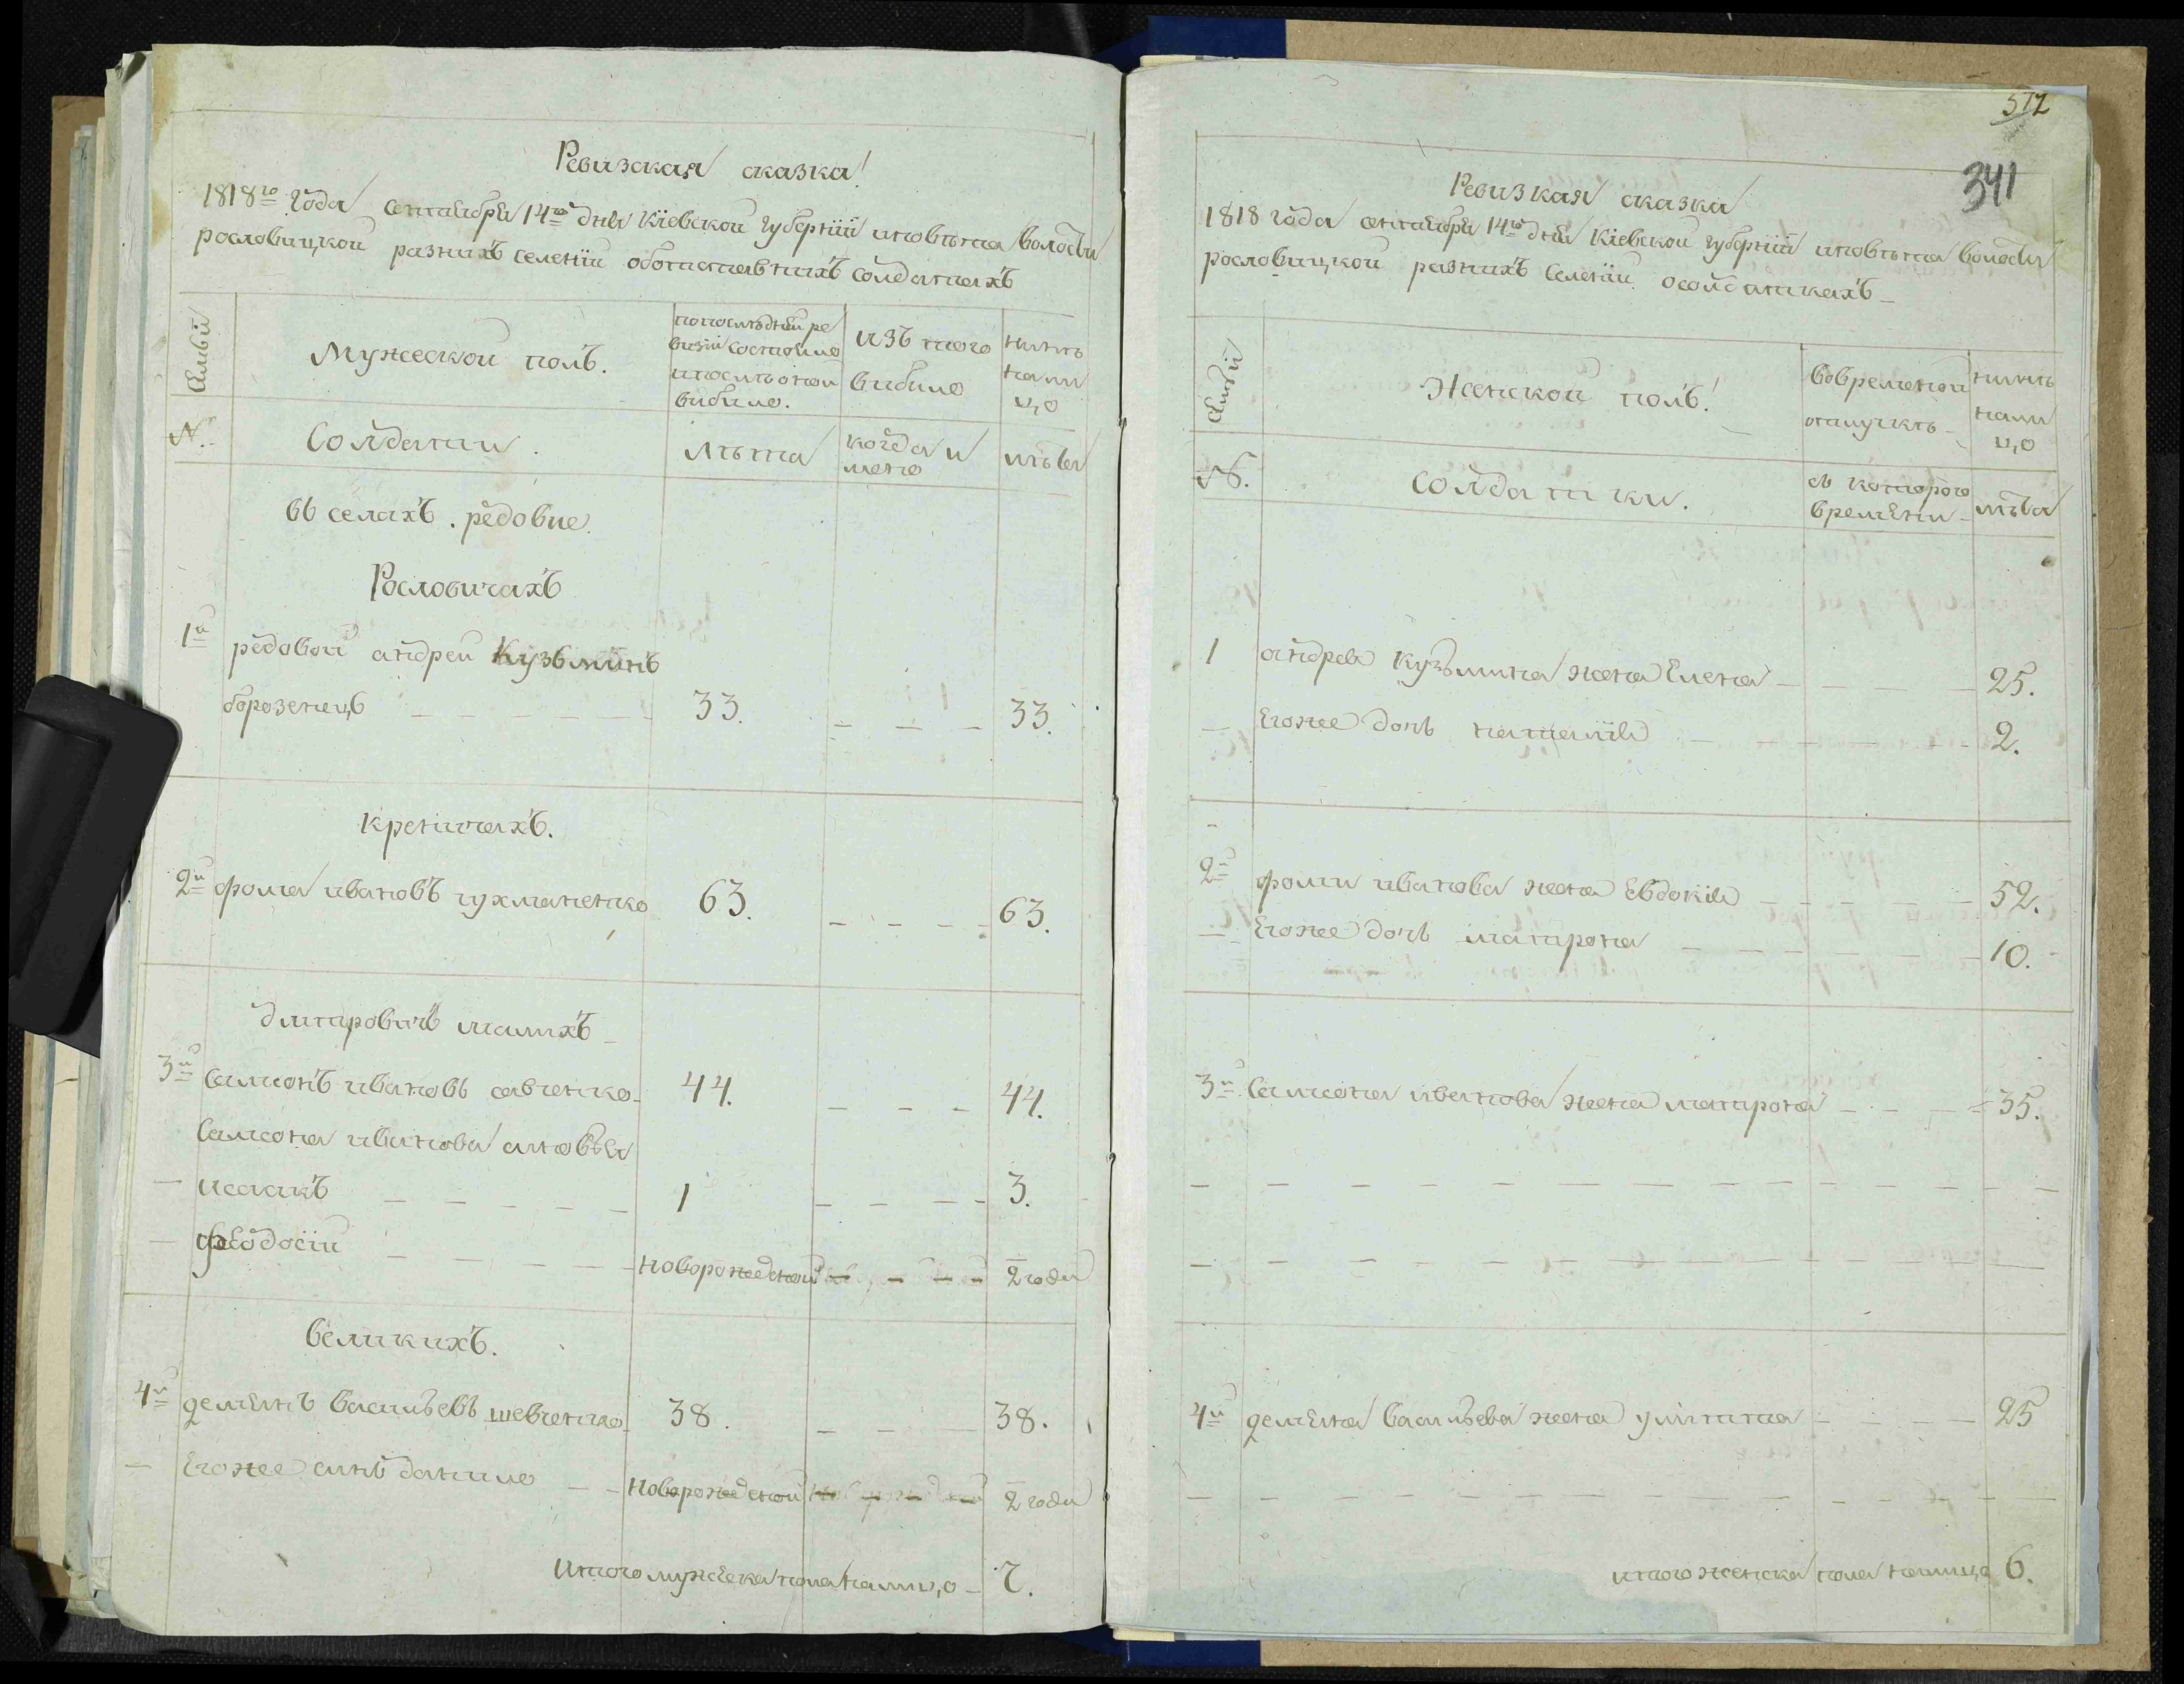 Ревизская сказка!
1818го года сентября 14го дня Кіевской губерніи иповѣта волости
рословицкой разнихъ селеній оботставнихъ солдатахъ
Семьи
Мужеской полъ.
попослѣдней ре
визіи состояло
ипослѣоной
вибило.
изъ того
вибило
нинѣ
нали
цо
№.
Солдати.
лѣта
когда и
лѣта
въ селахъ. рѣдовие.
Рословичахъ
1й
рѣдовой андрей Кузьминъ
борозенецъ
33.
33.
Креничахъ.
2й фома ивановъ чухманенко 63.
63.
дмитровичъ малихъ
3й Самсонъ ивановъ савченко 44.
44.
Самсона иванова синовья
исакъ
1
3.
феодосій
новорожденой
2 года
великихъ.
4й дементъ Васильевъ шевченко 38.
38.
Егоже синъ данило
новорожденой
2 года
Итого мужеска пола налицо 7.
572
341
Ревизкая сказка
1818 года сентября 14го дня Кіевской губерніи иповѣта волости
рословицкой разнихъ селеній осолдаткахъ
Семьи
Женской полъ!
вовременой
отлучкѣ
нинѣ
нали
цо
№.
Солдатки.
съ которого
времени
лѣта
1 андрея Кузьмина жена Елена 25.
Егоже дочь наталія 2.
2й фоми иванова жена Евдокия 52.
Егоже дочь матрона 10.
3й Самсона иванова жена матрона 35.
4й демента Васильева жена улита 25
итого женска пола налицо 6.